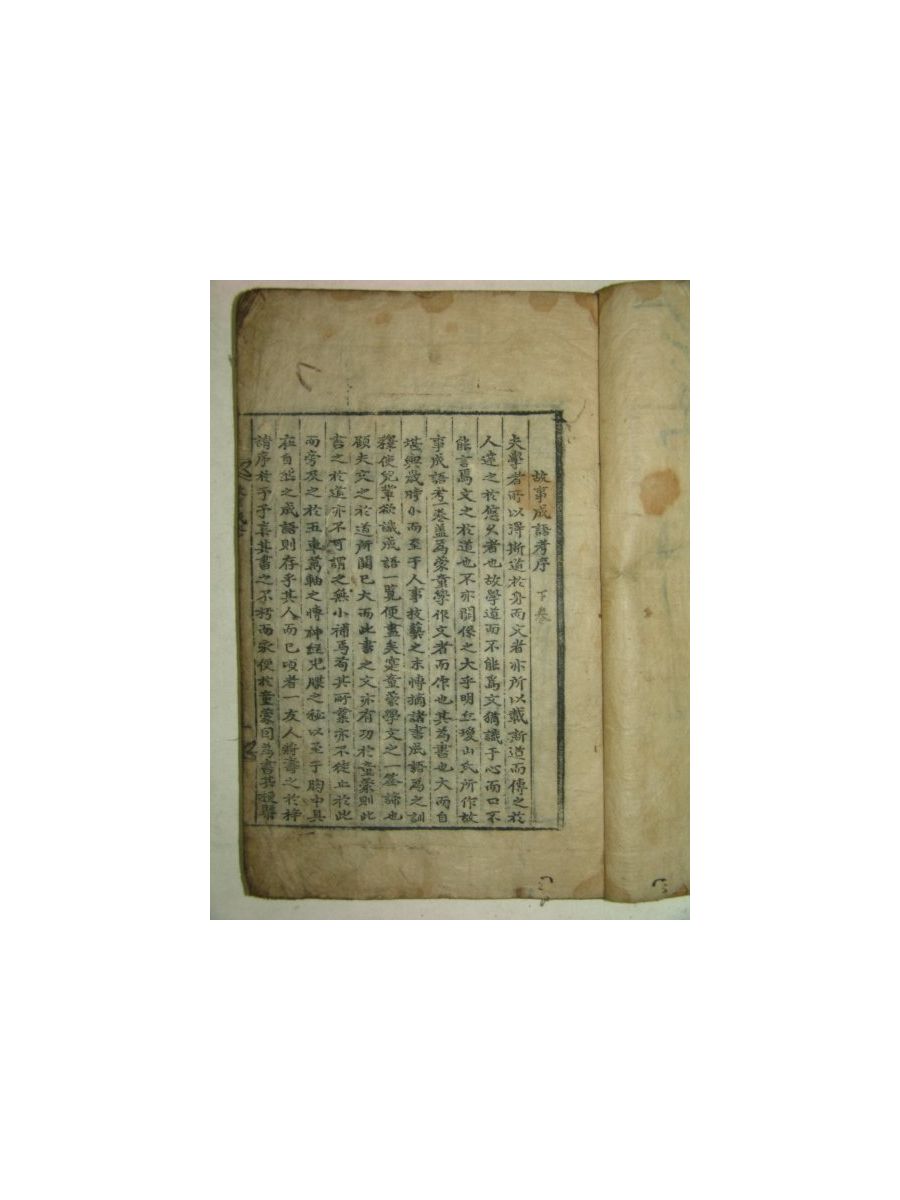 故事成語考序 下卷
夫學者所以得斯道於身而文者亦所以載斯道而傳之於
人達之於悠久者也故學道而不能爲文猶識于心而口不
能言爲文之於道也不亦關係之大乎明丘瓊山氏所作故
事成語考一卷盖爲蒙童學作文者而作也其爲書也大而自
堪輿歲時小而至于人事技藝之末博摘諸書成語爲之訓
釋使兒輩欲識成語一覽便盡矣寔童蒙學文之一筌蹄也
顧夫文之於道所關已大而此書之文亦有功於童蒙則此
書之於道亦不可謂之無小補焉苟其所業亦不徒止於此
而旁及之於五車萬軸之博神經児牒之秘以至于胸中具
在自出之成語則存乎其人而已頃者一友人將壽之於梓
請序於予予嘉其書之不朽而衆便於童蒙因為書其梗槩